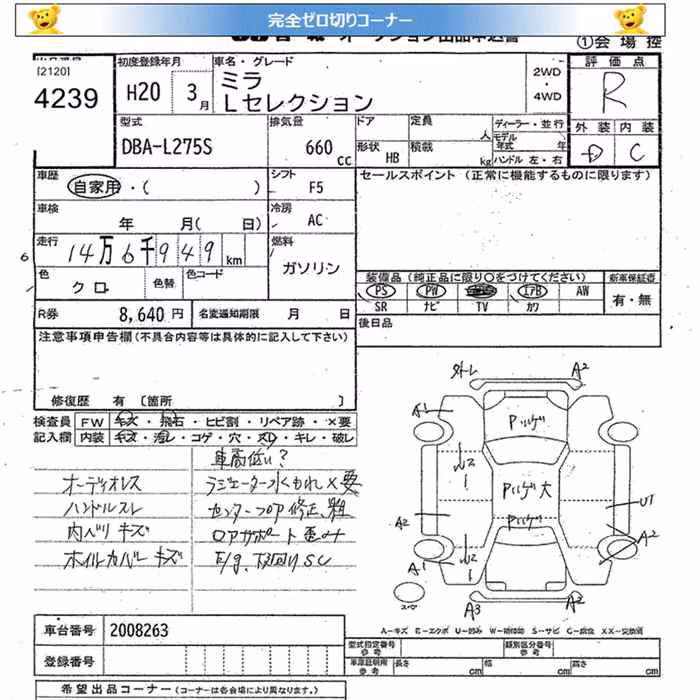 完全ゼロ切りコーナー
①会場控
[2120]
4239
初度登録年月
H20 3月
車名・グレード
ミラ
Lセレクション
2WD
・
4WD
評価点
R
外装 内装
D C
型式
DBA-L275S
排気量
660 cc
ドア
形状 HB
定員 人
積載 kg
ディーラー・並行
モデル年式 年
ハンドル 左・右
車歴
自家用・( )
シフト F5
セールスポイント (正常に機能するものに限ります)
車検
年 月( 日)
冷房 AC
走行
14万6千949km
燃料
ガソリン
色
クロ
色替
色コード
装備品(純正品に限り○をつけてください)
新車保証書
PS PW エアB AW
SR ナビ TV カワ
有・無
R券 8,640円
名変通知期限 月 日
後日品
注意事項申告欄(不具合内容等は具体的に記入して下さい)
修復歴 有 [箇所 ]
検査員 FW キズ・飛石・ヒビ割・リペア跡・×要
記入欄 内装 キズ・汚レ・コゲ・穴・スレ・キレ・破レ
車高低い?
オーディオレス
ラジエーター水くもれ×要
ハンドルスレ
内ハリキズ
ロアサポート歪み
ホイルカバーキズ
E/g、下回りSC
外レ
A2
A1
Pハゲ
Pハゲ大
Pハゲ
U1
A2
A2
A1
A3
A2
A-キズ E-エクボ U-凹み W-補修跡 S-サビ C-腐食 XX-交換済
車台番号 2008263
登録番号
型式指定番号 参考
類別区分番号 参考
車庫証明用 参考
長さ cm
幅 cm
高さ cm
希望出品コーナー(コーナーは各会場により異なります。)